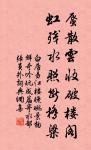 蜃散雲收破樓閣
虹殘水照斷橋梁
白居易江樓晚眺景物
鮮奇吟玩成篇寄水部
張員外詞典網集